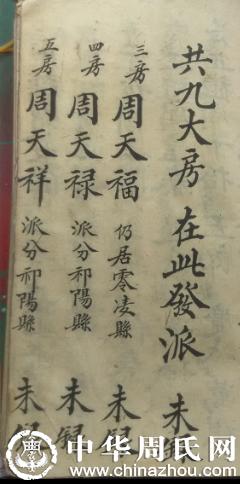 共九大房 在此發派 未録
三房 周天福 仍居零凌縣 未録
四房 周天禄 派分祁陽縣 未録
五房 周天祥 派分祁陽縣 未録
中华周氏网
www.chinazhou.com